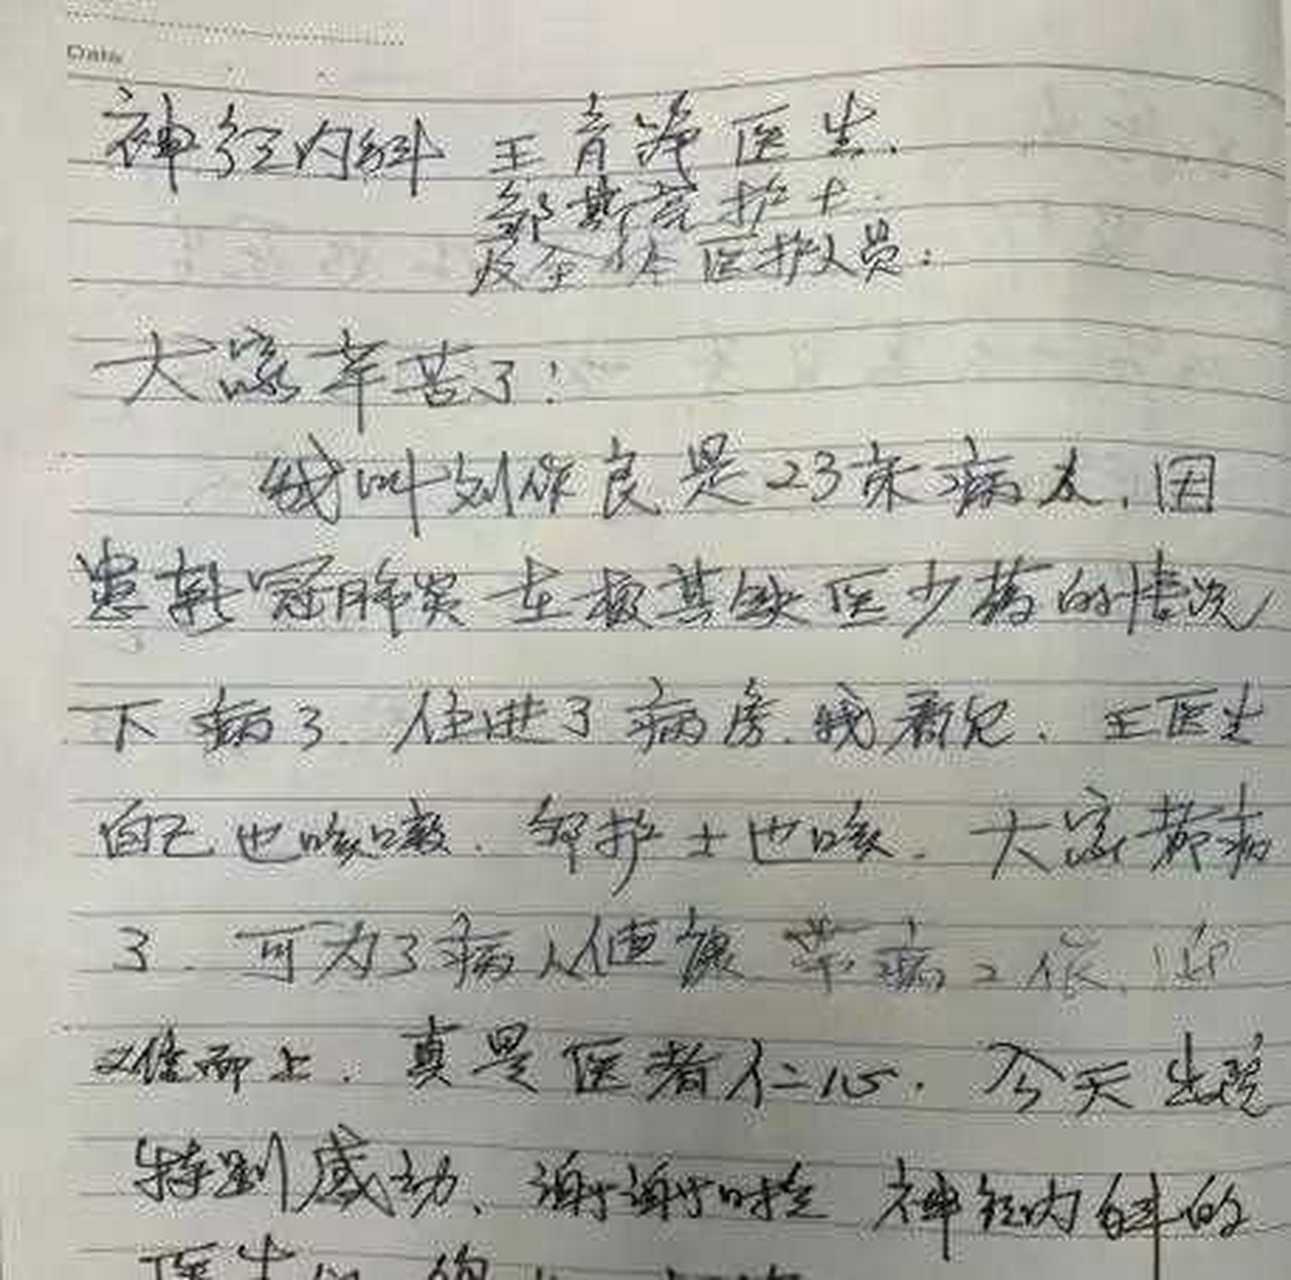 Date
神经内科 王育净医生.
邹斯 护士.
及全体医护人员:
大家辛苦了!
我叫刘作良是23床病人,因
患新冠肺炎在极其缺医少药的情况
下病了.住进了病房.我看见.王医生
自己也咳嗽.邹护士也咳.大家都病
了.可为了病人健康 带病工作.迎
难而上.真是医者仁心.今天出院
特别感动、谢谢 神经内科的
医生们的